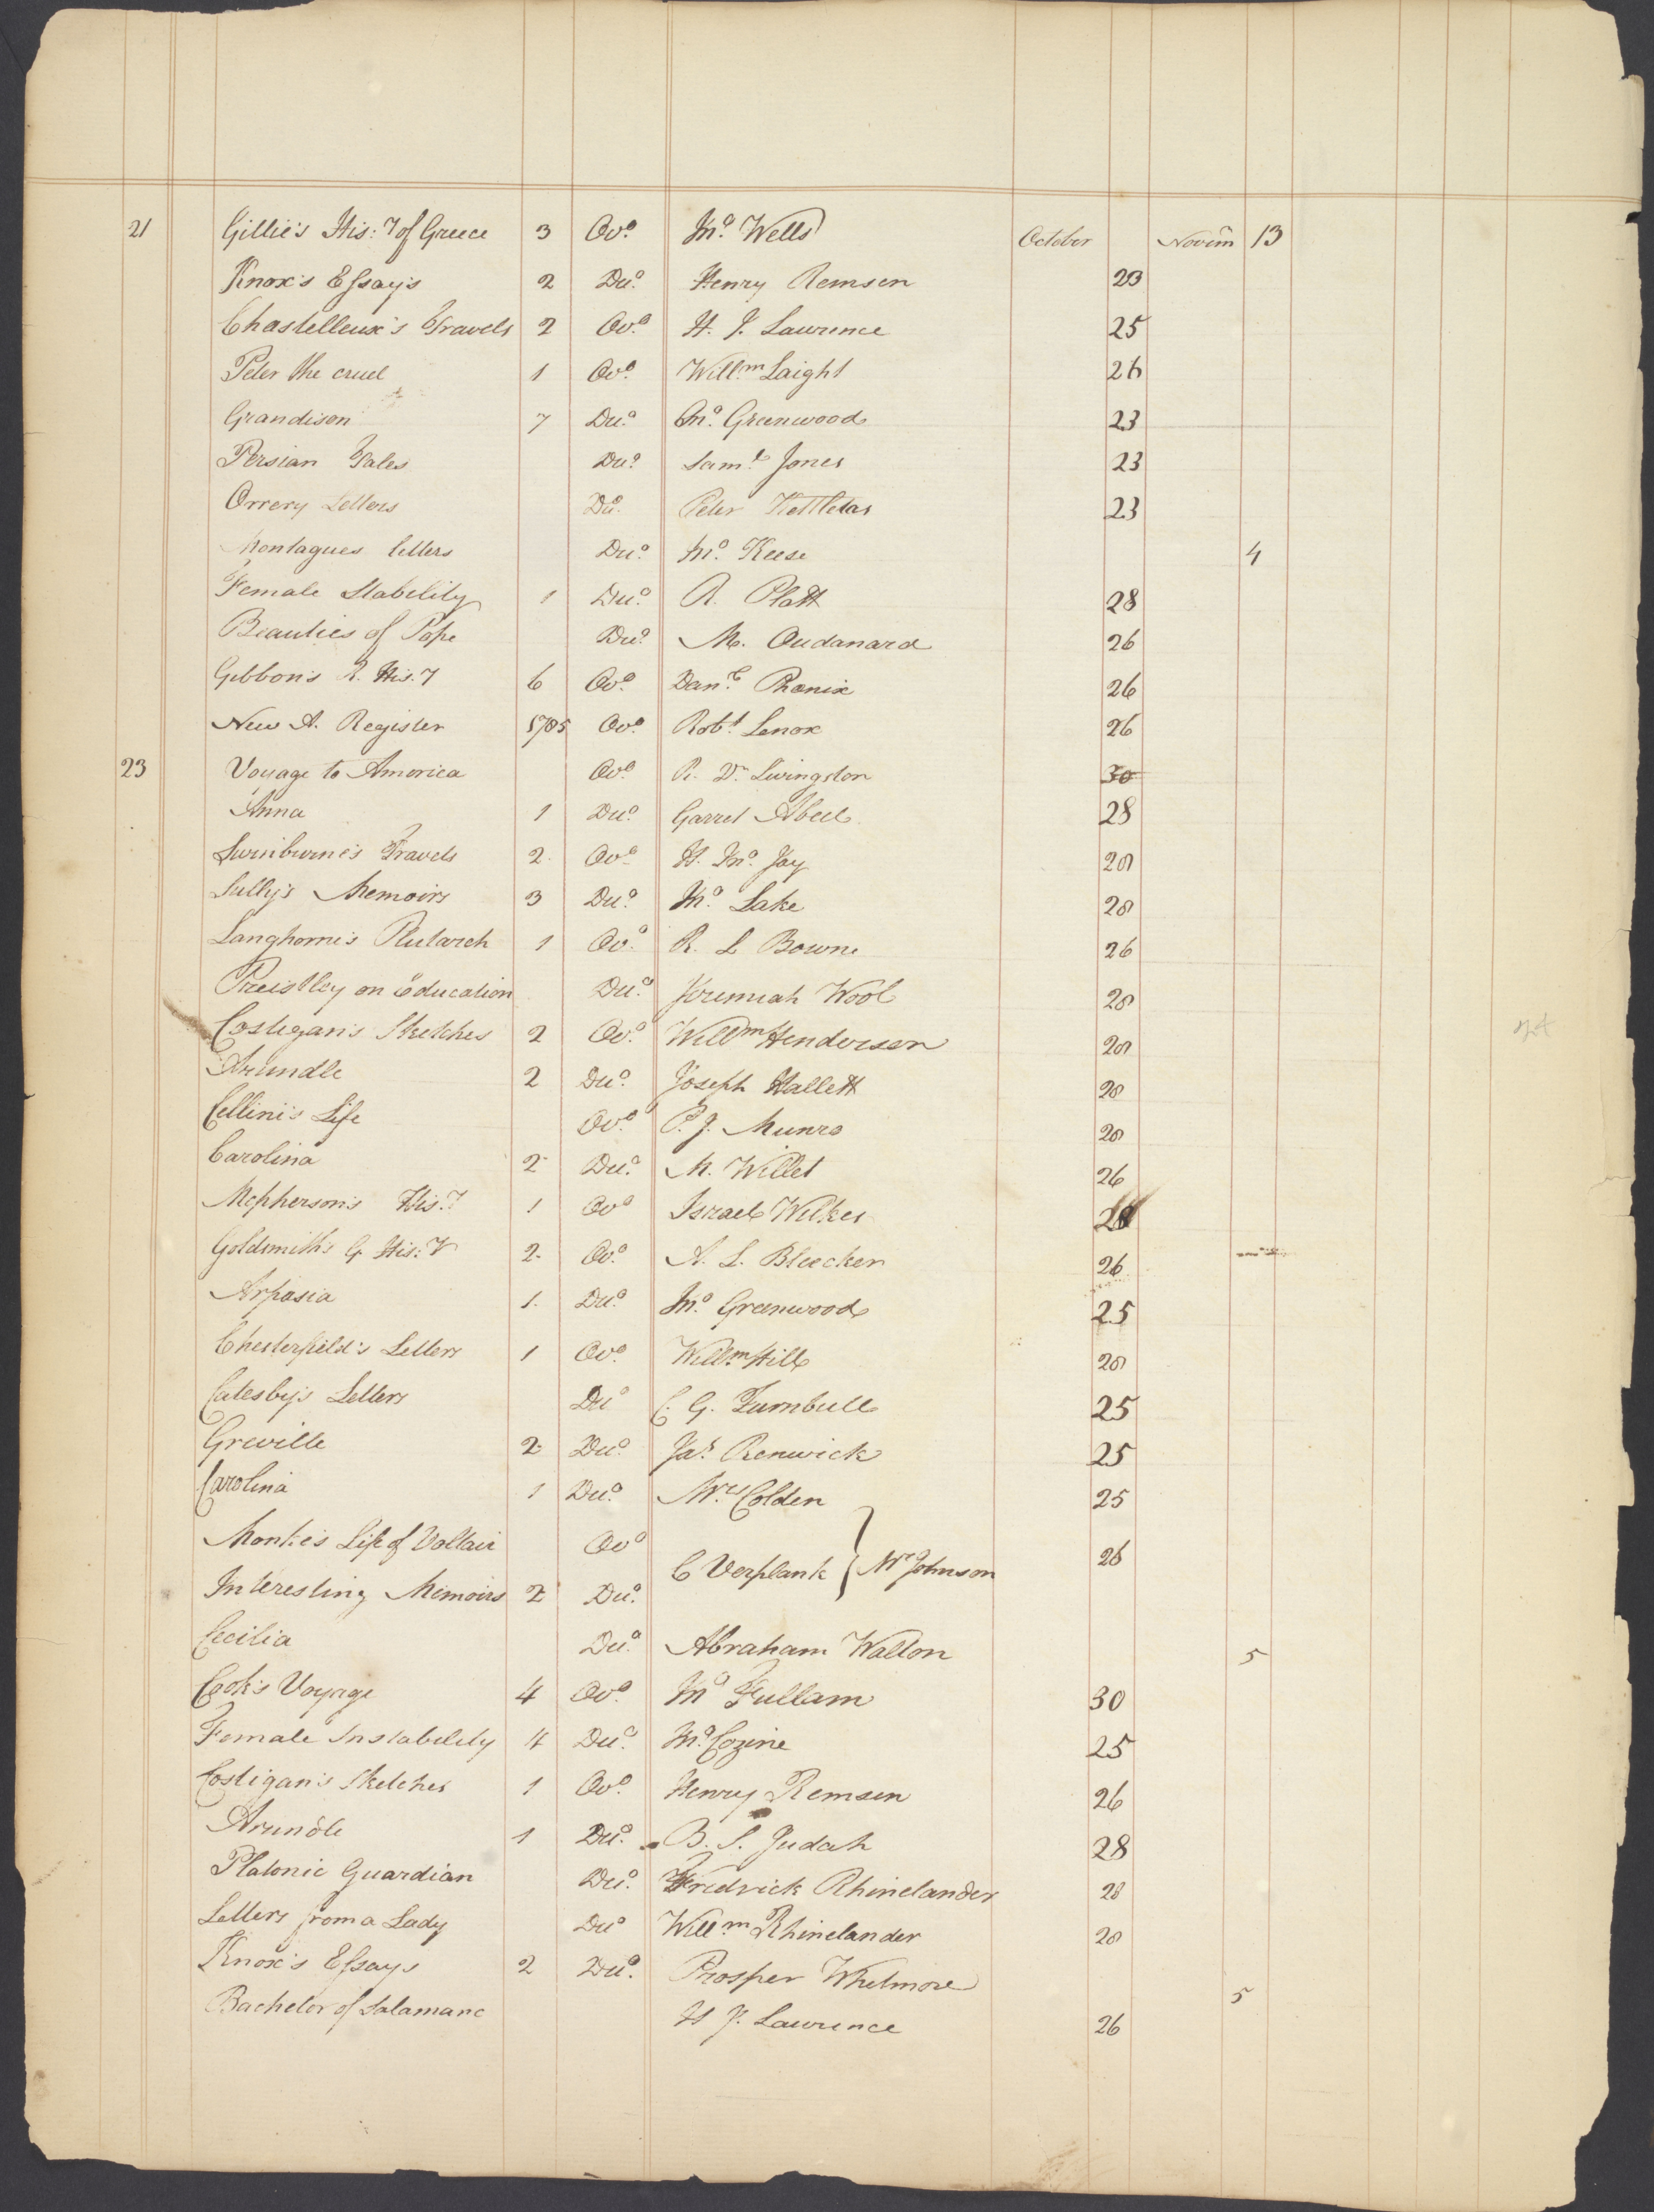 21 Gillie's His:y of Greece 3 Ovo Jno. Wells October Novem 13
Knox's Essay's 2 Duo. Henry Remsen 23
Chastelleux's Travels 2 Ovo. H. J. Lawrence 25
Peter the cruel 1 Ovo. Willm Laight 26
Grandison 7 Duo. Jno. Greenwood 23
Persian Tales Duo. Saml. Jones 23
Orrery Letters Duo. Peter Kettletas 23
Montagues letters Duo. Jno. Keese 4
Female Stability 1 Duo. R. Platt 28
Beauties of Pope Duo. M. Oudanard 26
Gibbon's R. His.y 6 Ovo. Danl. Phœnix 26
New A. Register 1785 Ovo. Robt. Lenox 26
23 Voyage to America Ovo. R. Dr. Livingston 30
Anna 1 Duo. Garret Abeel 28
Swinburne's Travels 2 Ovo. H. Jno. Jay 28
Sully's Memoirs 3 Duo. Jno. Lake 28
Langhorne's Plutarch 1 Ovo. R. L Bowne 26
Preistley on Education Duo. Jeremiah Wool 28
Costigan's Sketches 2 Ovo. Willm Henderson 28
Arundle 2 Duo. Joseph Hallett 28
Cellini's Life Ovo. P. J. Munro 28
Carolina 2 Duo. M. Willet 26
Mcpherson's His.y 1 Ovo Israel Wilkes 28
Goldsmith's G. His:y 2. Ovo. A. L. Bleecker 26
Arpasia 1. Duo. Jno. Greenwood 25
Chesterfield's Letters 1 Ovo. Willm Hill 28
Catesby's Letters Duo C. G. Turnbull 25
Greville 2 Duo. Jas. Renwick 25
Carolina 1 Duo. Mrs. Colden 25
Monke's Life of Voltair Ovo
C Verplank } Mr Johnson 26
Interesting Memoirs 2 Duo.
Cecilia Duo. Abraham Walton 5
Cook's Voyage 4 Ovo. Jno Fullam 30
Female Instability 4 Duo. Jno. Cozine 25
Costigan's Sketches 1 Ovo. Henry Remsen 26
Arundle 1 Duo. B. S. Judah 28
Platonic Guardian Duo. Fredrick Rhinelander 28
Letters from a Lady Duo Willm. Rhinelander 28
Knox's Essays 2 Duo. Prosper Whetmore 5
Bachelor of Salamanc H J. Lawrence 26